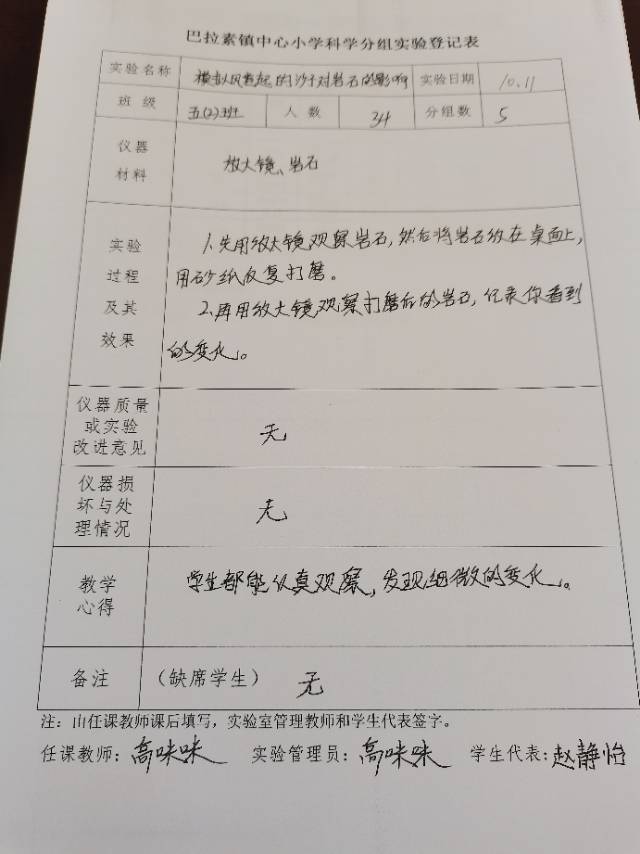 巴拉素镇中心小学科学分组实验登记表
实验名称 模拟风卷起的沙子对岩石的影响 实验日期 10.11
班 级 五(2)班 人 数 34 分组数 5
仪器
材料
放大镜、岩石
实验
过程
及其
效果
1.先用放大镜观察岩石,然后将岩石放在桌面上,
用砂纸反复打磨。
2.再用放大镜观察打磨后的岩石,记录你看到
的变化。
仪器质量
或实验
改进意见
无
仪器损
坏与处
理情况
无
教学
心得
学生都能认真观察,发现细微的变化。
备注 (缺席学生) 无
注:由任课教师课后填写,实验室管理教师和学生代表签字。
任课教师:高咪咪 实验管理员:高咪咪 学生代表:赵静怡